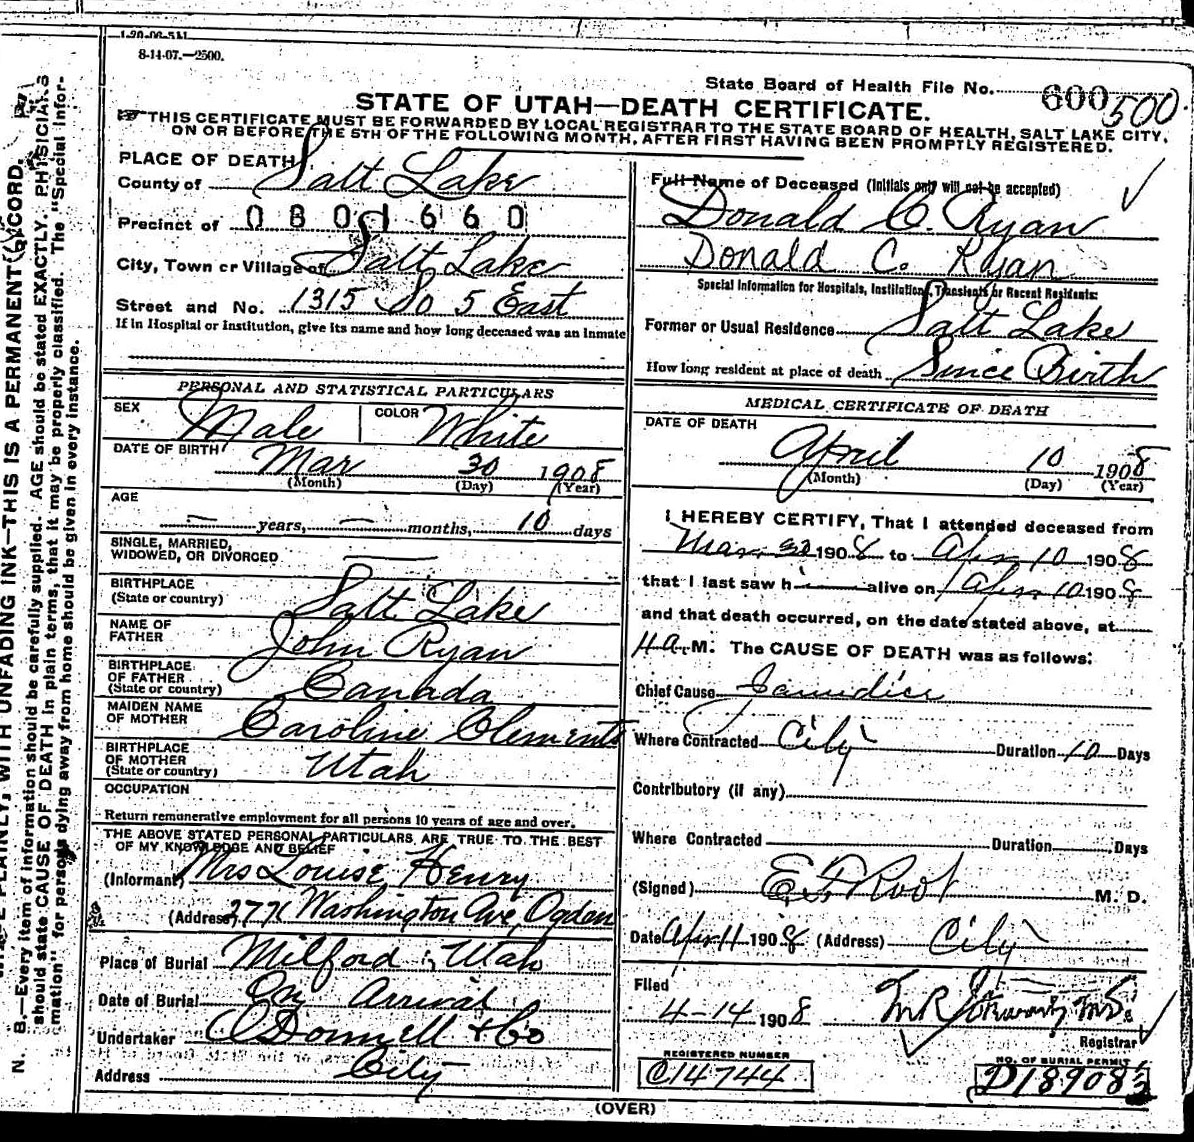 1-20-06-5M
8-14-07.—2500.
State Board of Health File No. 600 500
STATE OF UTAH—DEATH CERTIFICATE.
THIS CERTIFICATE MUST BE FORWARDED BY LOCAL REGISTRAR TO THE STATE BOARD OF HEALTH, SALT LAKE CITY,
ON OR BEFORE THE 5TH OF THE FOLLOWING MONTH, AFTER FIRST HAVING BEEN PROMPTLY REGISTERED.
PLACE OF DEATH
County of Salt Lake
Precinct of 0801660
City, Town or Village of Salt Lake
Street and No. 1315 So 5 East
If in Hospital or Institution, give its name and how long deceased was an Inmate
PERSONAL AND STATISTICAL PARTICULARS
SEX Male COLOR White
DATE OF BIRTH Mar 30 1908
(Month) (Day) (Year)
AGE
— years, — months, 10 days
SINGLE, MARRIED,
WIDOWED, OR DIVORCED —
BIRTHPLACE
(State or country) Salt Lake
NAME OF
FATHER John Ryan
BIRTHPLACE
OF FATHER
(State or country) Canada
MAIDEN NAME
OF MOTHER Caroline Clements
BIRTHPLACE
OF MOTHER
(State or country) Utah
OCCUPATION
Return remunerative employment for all persons 10 years of age and over.
THE ABOVE STATED PERSONAL PARTICULARS ARE TRUE TO THE BEST
OF MY KNOWLEDGE AND BELIEF
(Informant) Mrs Louise Henry
(Address) 2771 Washington Ave, Ogden
Place of Burial Milford, Utah
Date of Burial On Arrival
Undertaker O'Donnell & Co
Address City
Full Name of Deceased (Initials only will not be accepted)
Donald C. Ryan
Donald C. Ryan
Special Information for Hospitals, Institutions, Transients or Recent Residents:
Former or Usual Residence Salt Lake
How long resident at place of death Since Birth
MEDICAL CERTIFICATE OF DEATH
DATE OF DEATH
April 10 1908
(Month) (Day) (Year)
I HEREBY CERTIFY, That I attended deceased from
Mar. 30 1908 to Apr 10 1908
that I last saw h alive on Apr 10 1908
and that death occurred, on the date stated above, at
4 A. M. The CAUSE OF DEATH was as follows:
Chief Cause Jaundice
Where Contracted City Duration 10 Days
Contributory (if any)
Where Contracted Duration Days
(Signed) E F Root M. D.
Date Apr 11 1908 (Address) City
Filed
4-14 1908
Registrar
REGISTERED NUMBER
C14744
NO. OF BURIAL PERMIT
D18908
(OVER)
N. B.—Every item of information should be carefully supplied. AGE should be stated EXACTLY. PHYSICIANS
should state CAUSE OF DEATH in plain terms, that it may be properly classified. The "Special Infor-
mation" for persons dying away from home should be given in every instance.
PLAINLY, WITH UNFADING INK—THIS IS A PERMANENT RECORD.